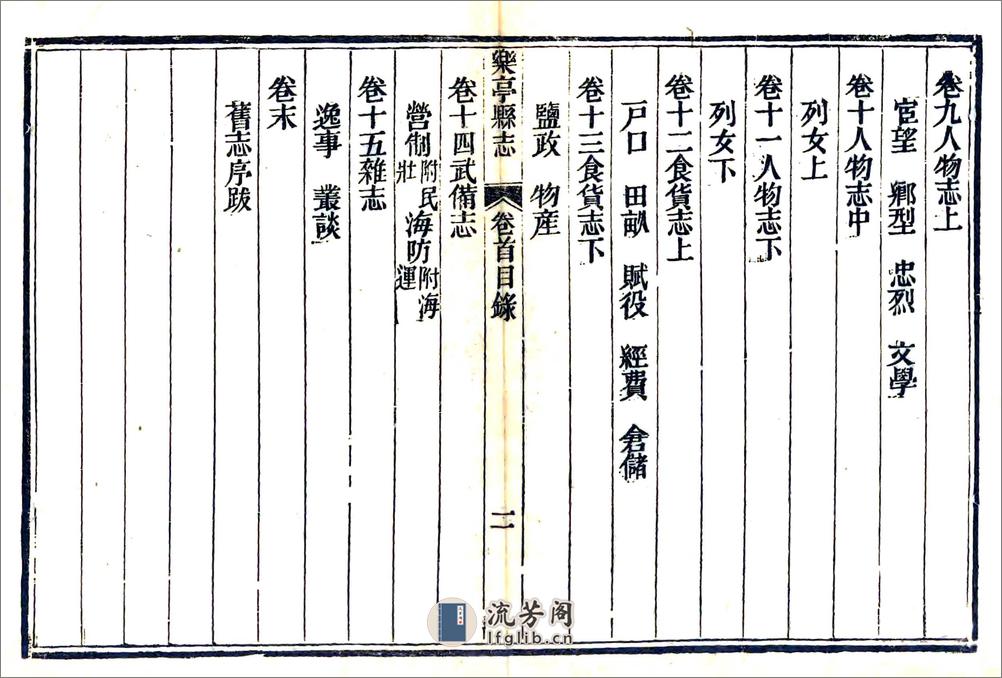 卷九人物志上
宦望　鄉型　忠烈　文學
卷十人物志中
列女上
卷十一人物志下
列女下
卷十二食貨志上
戸口　田畝　賦役　經費　倉儲
卷十三食貨志下
鹽政　物産
樂亭縣志　卷首目錄　二
卷十四武備志
營制附民壯　海防附海運
卷十五雜志
逸事　叢談
卷末
舊志序跋
流芳阁
lfglib.cn